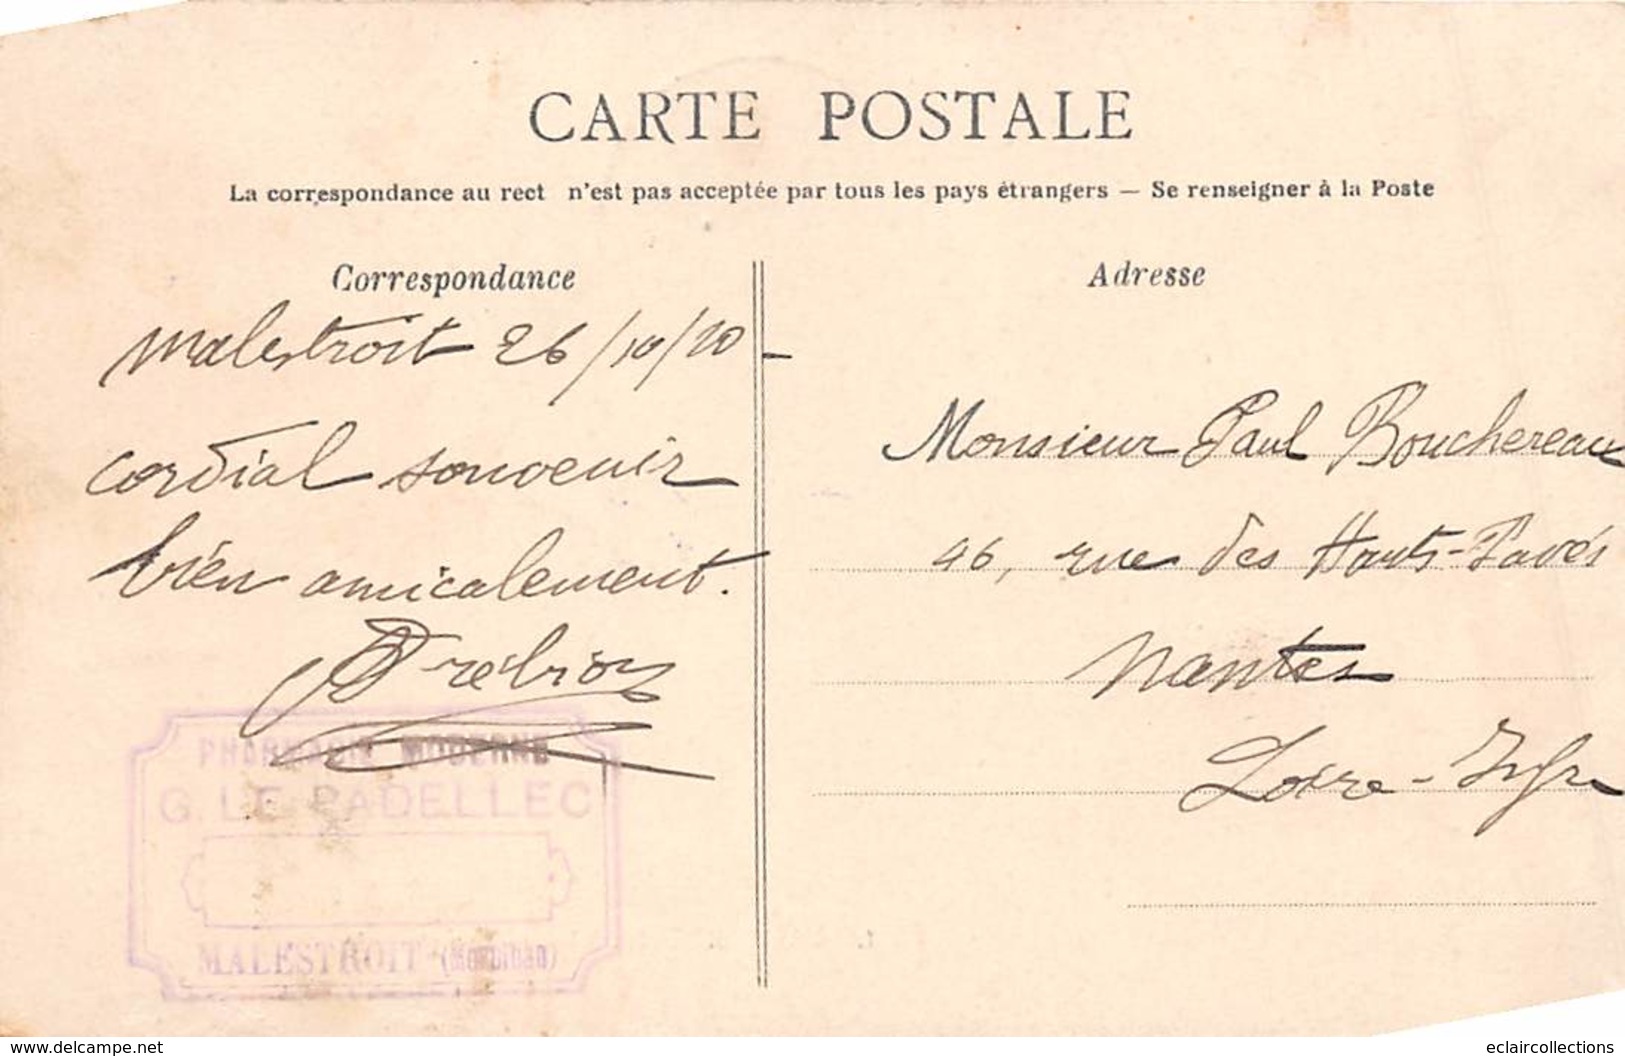 CARTE POSTALE
La correspondance au rect n'est pas acceptée par tous les pays étrangers — Se renseigner à la Poste
Correspondance
Malestroit 26/10/20 -
cordial souvenir
bien amicalement.
PHARMACIE MODERNE
G. LE PADELLEC
MALESTROIT (Morbihan)
Adresse
Monsieur Paul Bouchereau
46, rue des Hauts-Pavés
Nantes
Loire-Infre
www.delcampe.net
eclaircollections